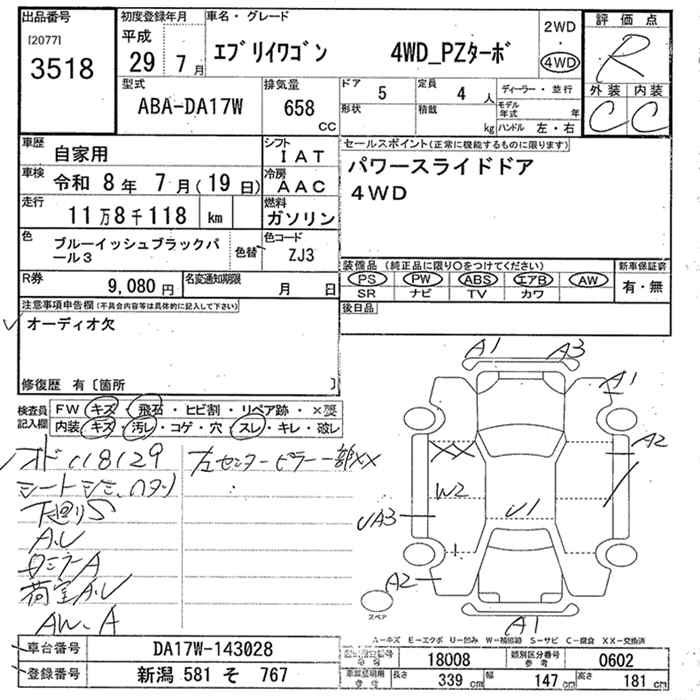 出品番号
[2077]
3518
初度登録年月
平成
29 7月
車名・グレード
ｴﾌﾞﾘｲﾜｺﾞﾝ 4WD_PZﾀｰﾎﾞ
2WD
・
4WD
評価点
R
外装 内装
C C
型式
ABA-DA17W
排気量
658
CC
ドア 5
形状
定員 4 人
積載 kg
ディーラー・並行
モデル年式 年
ハンドル 左・右
車歴
自家用
シフト
IAT
車検
令和 8年 7月(19日)
冷房
AAC
走行
11万8千118 km
燃料
ガソリン
色
ブルーイッシュブラックパール3
色替
色コード
ZJ3
R券
9,080円
名変通知期限
月 日
セールスポイント(正常に機能するものに限ります)
パワースライドドア
4WD
装備品 (純正品に限り○をつけてください)
PS PW ABS エアB AW
SR ナビ TV カワ
新車保証書
有・無
後日品
注意事項申告欄(不具合内容等は具体的に記入して下さい)
オーディオ欠
修復歴 有〔箇所 〕
検査員
記入欄
FW キズ・飛石・ヒビ割・リペア跡・×要
内装 キズ・汚レ・コゲ・穴・スレ・キレ・破レ
118129
左センターピラー一部XX
シートシミ、
下廻りS
A.U
荷室A.U
AW.A
A1
A3
A1
A2
XX
W2
U1
UA3
A2
A1
スペア
A-キズ E-エクボ U-凹み W-補修跡 S-サビ C-腐食 XX-交換済
車台番号
DA17W-143028
登録番号
新潟 581 そ 767
18008
類別区分番号
参考
0602
長さ 339 cm
幅 147 cm
高さ 181 cm